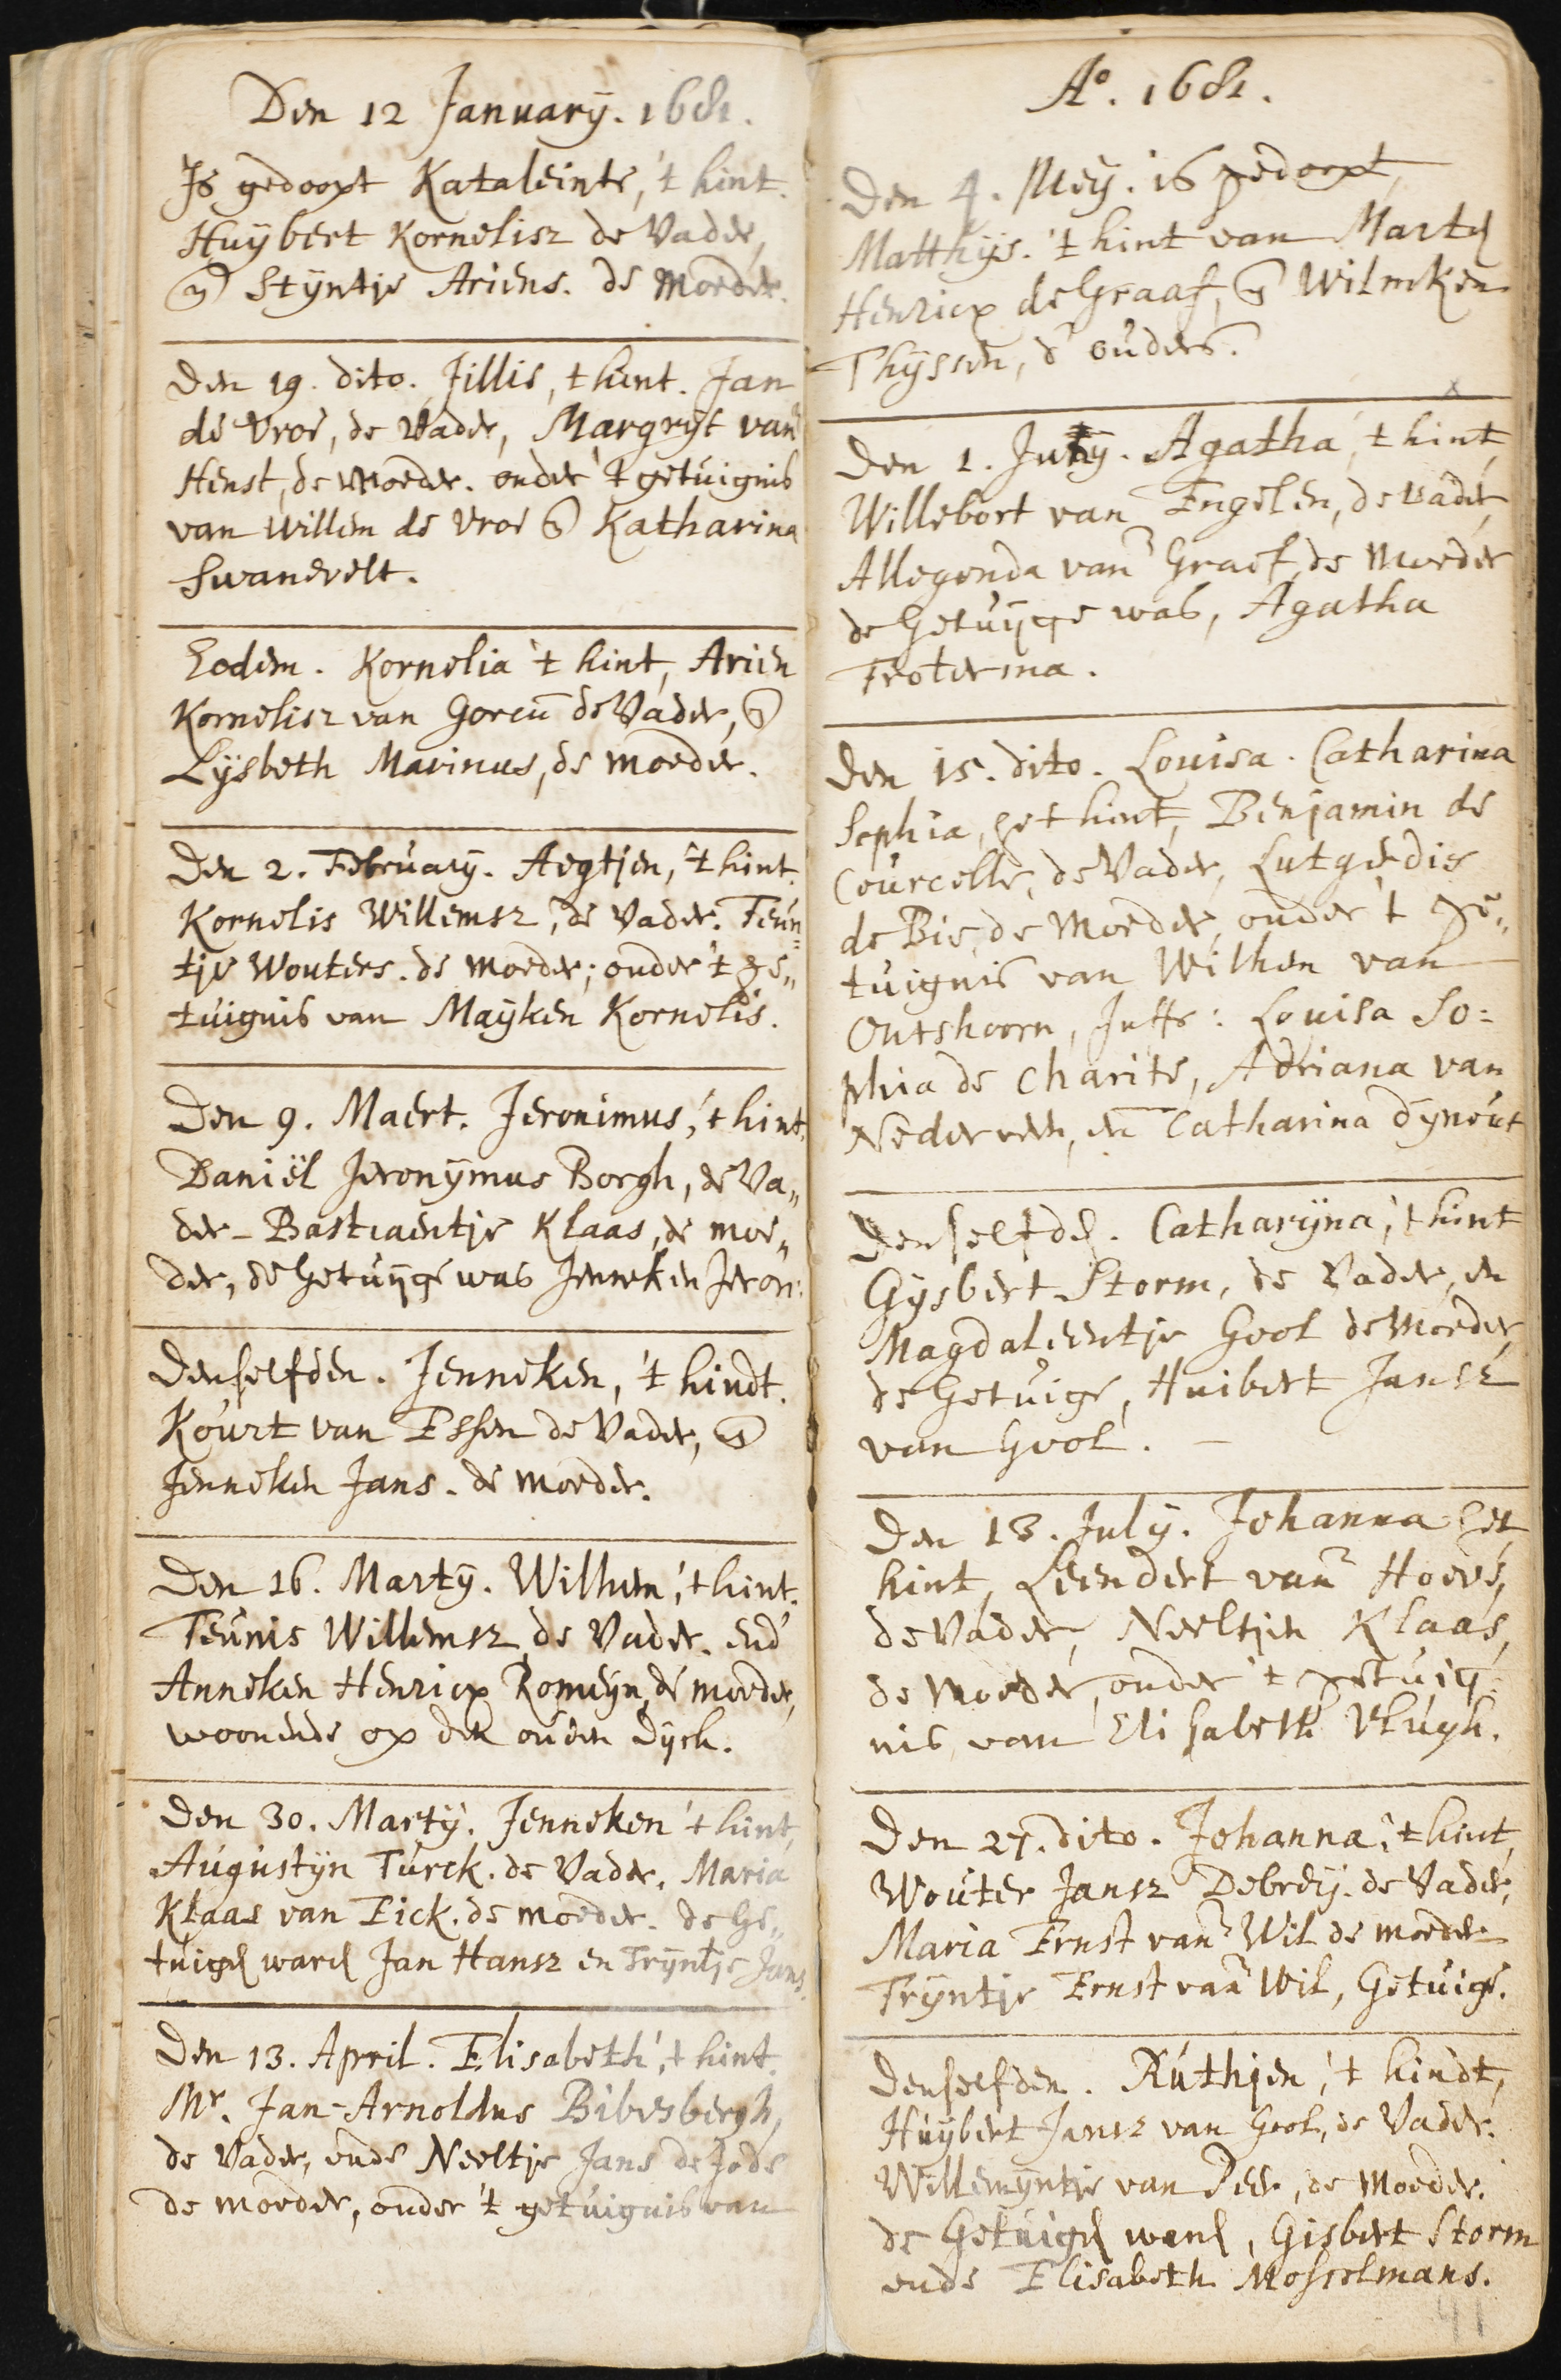 Den 12 January. 1681.
Is gedoopt Kataleinte, 't kint.
Huybert Kornelisz de Vader,
en Styntje Ariens. de Moeder.
Den 19. dito. Jillis, 't kint. Jan
de Vroe, de Vader, Margryt van
Henst, de Moeder. onder 't getuignis
van Willem de Vroe en Katharina
Swanevelt.
Eodem. Kornelia 't kint, Arien
Kornelisz van Gorcū de Vader, en
Lysbeth Marinus, de moeder.
Den 2. February. Aegtjen, 't kint.
Kornelis Willemsz, de Vader. Teun=
tje Wouters. de moeder; onder 't ge„
tuignis van Mayken Kornelis.
Den 9. Maert. Jeronimus, 't kint,
Daniël Jeronymus Borgh, de Va„
der - Bastiaentje Klaas, de moe„
der, de Getuyge was Jenneken Jeron:
Denselfden. Jenneken, 't kindt.
Kourt van Essen de Vader, en
Jenneken Jans. de moeder.
Den 16. Marty. Willem, 't kint.
Teunis Willemsz, de Vader. end
Anneken Henricx Romeyn, de moeder,
woonende op den ouden Dyck.
Den 30. Marty. Jenneken 't kint,
Augustyn Turck. de Vader. Maria
Klaas van Eick. de moeder. de Ge„
tuigen waren Jan Hansz en Tryntje Jans.
Den 13. April. Elisabeth, 't kint.
Mr. Jan-Arnoldus Bibesbergh,
de Vader, ende Neeltje Jans de Jode
de moeder, onder 't getuignis van
Ao. 1681.
Den 4. Mey. is gedoopt,
Matthys. 't kint van Marten
Henricx de Graaf, en Wilmken
Thyssen, d' ouders.
x
Den 1. Juny. Agatha, 't kint,
Willebort van Engelen, de Vader,
Allegonda van Graef, de Moeder
de Getuyge was, Agatha
Feoterma.
Den 15. dito. Louisa. Catharina
Sophia, het kint, Benjamin de
Courcelle, de Vader, Lutgerdis
de Bie, de Moeder, onder 't ge„
tuignis van Wilhem van
Outshoorn, Juffr: Louisa So=
phia de Charite, Adriana van
Nederveen, en Catharina Dynout
Denselfden. Catharyna, 't kint
Gysbert Storm, de Vader, en
Magdaleentje Gool de Moeder,
de Getuige, Huibert Jansz
van Gool. —
Den 13. July. Johanna het
kint, Leendert van Hoeve,
de Vader, Neeltjen Klaas,
de Moeder, onder 't getuig=
nis van Elisabeth Vlugh.
Den 27. dito. Johanna, 't kint,
Wouter Jansz Debrey. de Vader,
Maria Ernst van Wil de moeder
Tryntje Ernst van Wil, Getuige.
Denselfden. Ruthjen, 't kindt,
Huybert Jansz van Gool, de Vader.
Willemyntje van Peer, de Moeder.
de Getuigen waren, Gisbert Storm
ende Elisabeth Mosselmans.
41